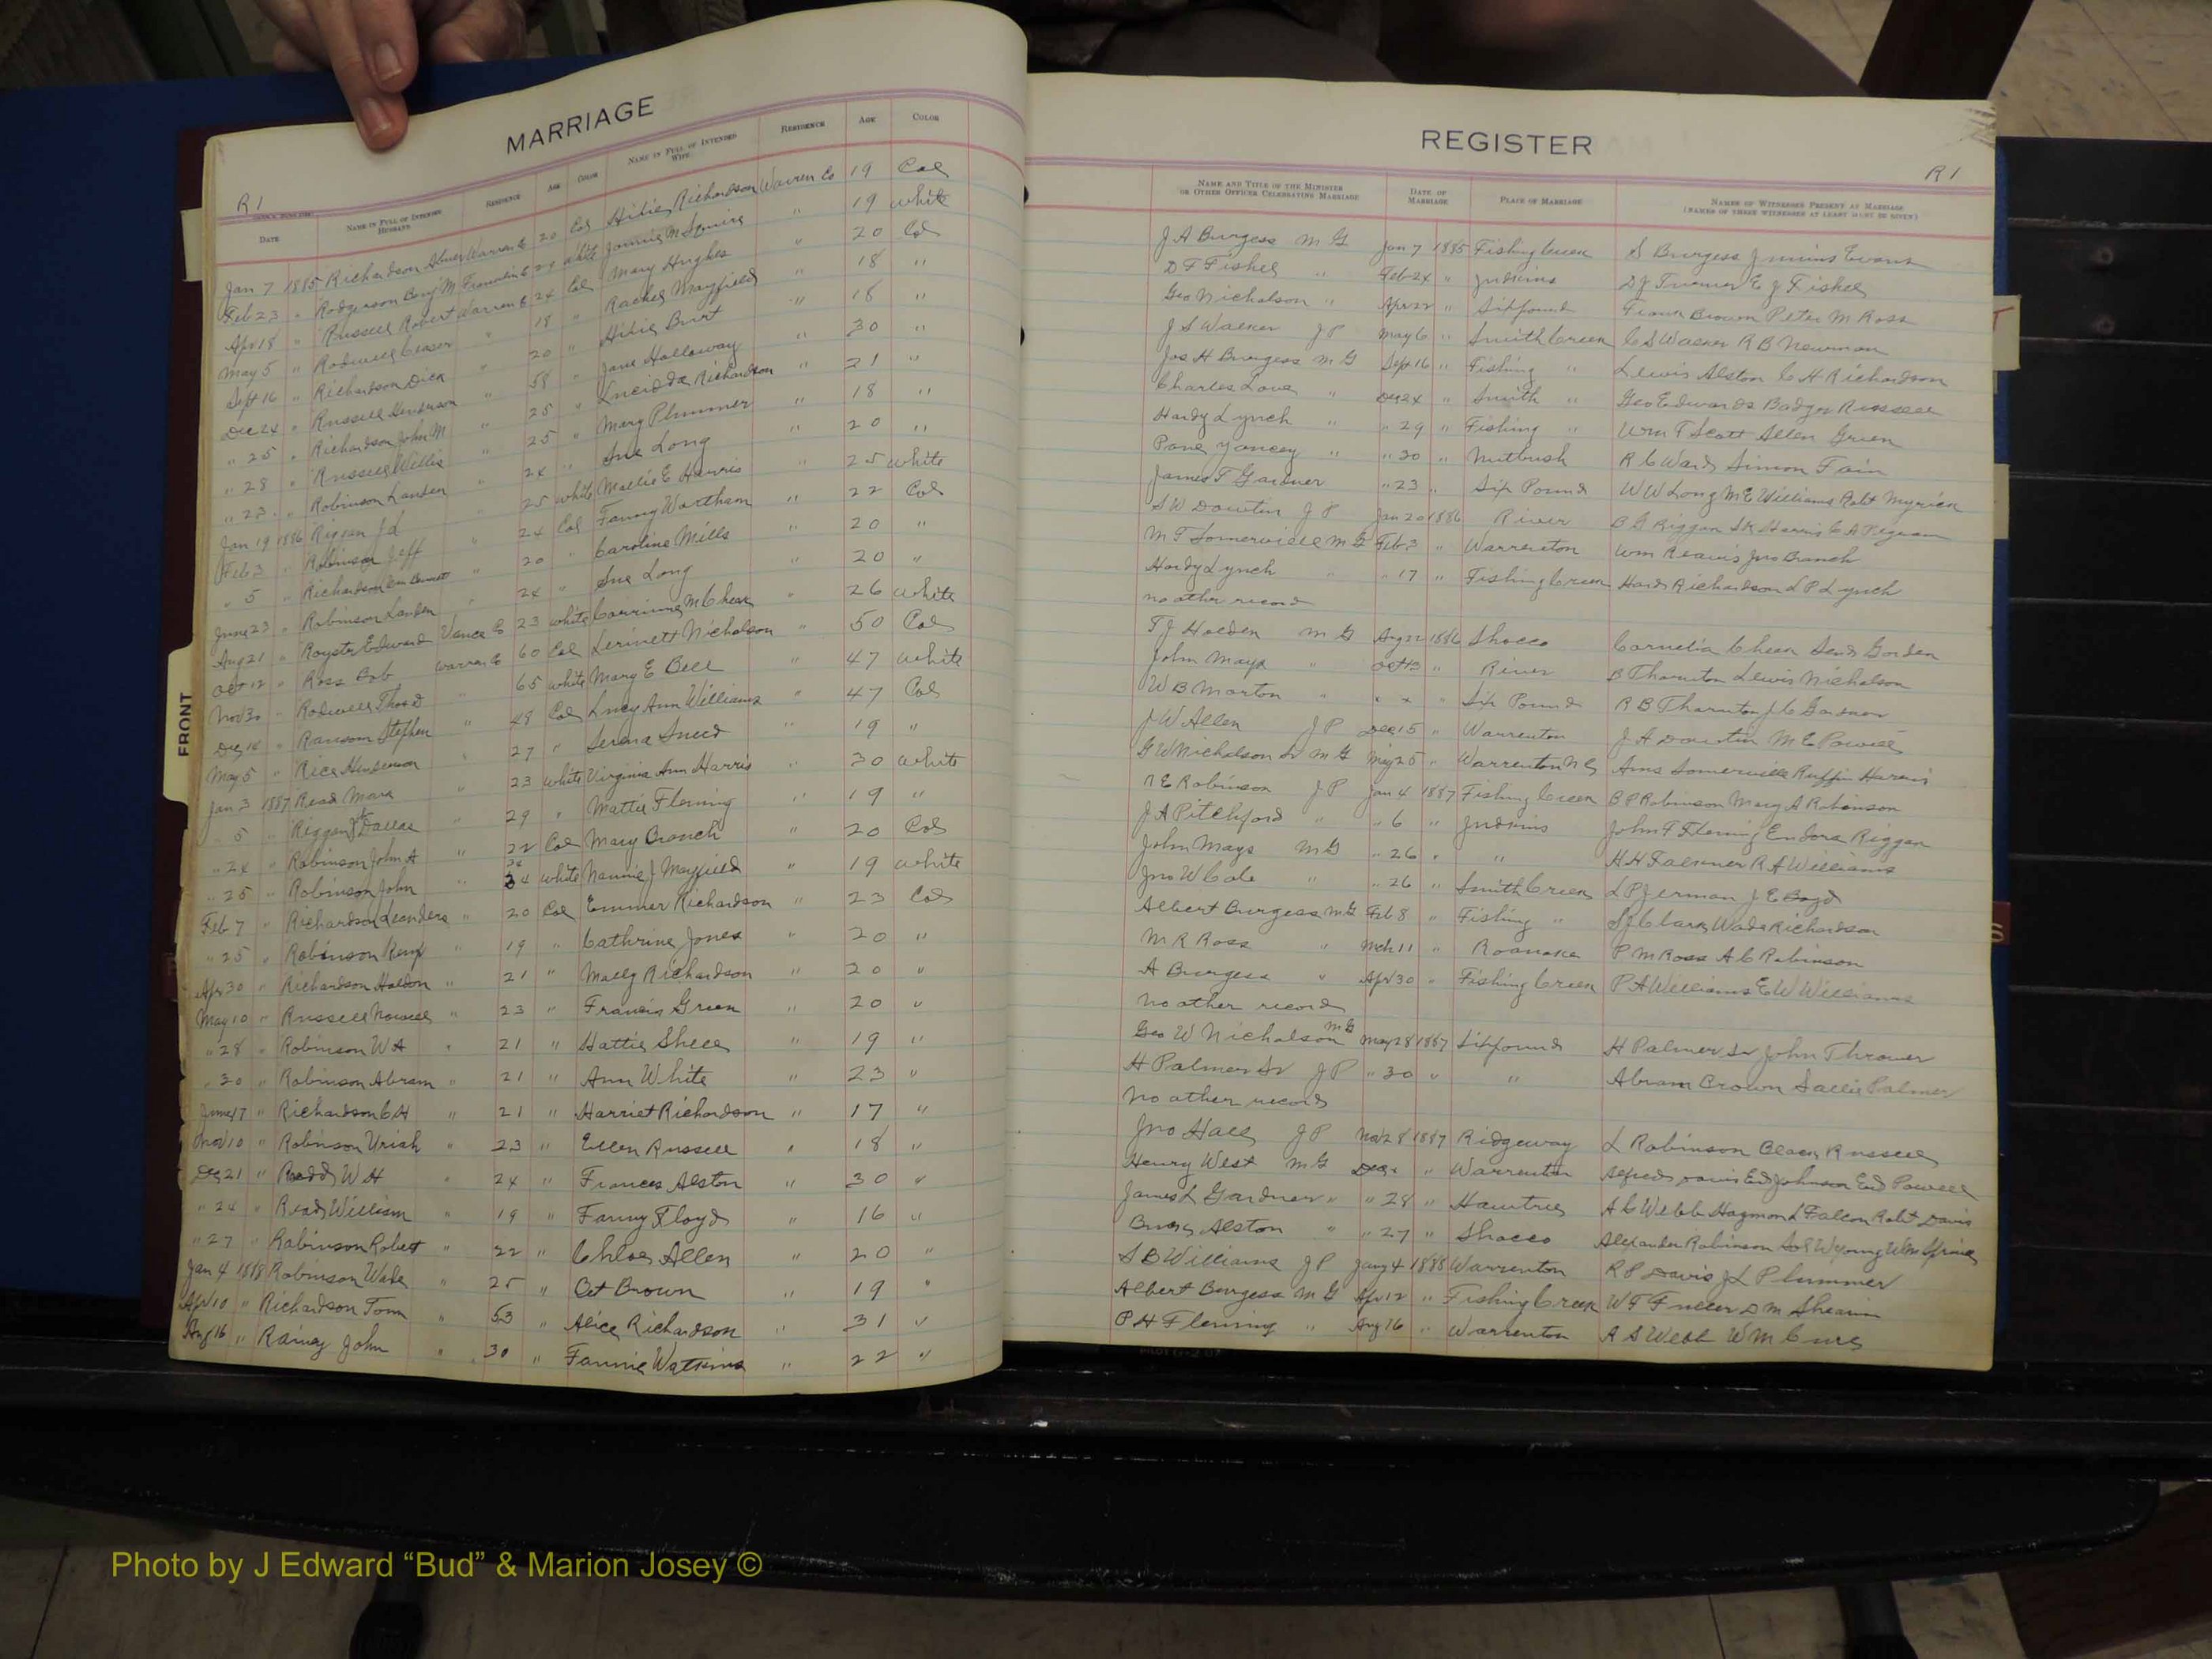 MARRIAGE
R 1
DATE NAME IN FULL OF INTENDED HUSBAND RESIDENCE AGE COLOR NAME IN FULL OF INTENDED WIFE RESIDENCE AGE COLOR
Jan 7 1885 Richardson Abner Warren Co 20 Col Richardson Warren Co 19 Col
Feb 23 " Rodgerson Benj M Franklin Co 29 white Jannie M Squire " 19 white
Apr 18 " Russell Robert Warren Co 24 Col Mary Hughes " 20 Col
May 5 " Rodwell Ceaser " 18 " Rachel Mayfield " 18 "
Sept 16 " Richardson Dick " 20 " Burt " 18 "
Dec 24 " Russell Henderson " 58 " Jane Holloway " 30 "
" 25 " Richardson John M " 25 " Richardson " 21 "
" 28 " Russell Willis " 25 " Mary Plummer " 18 "
" 23 " Robinson Landen " 24 " Sue Long " 20 "
Jan 19 1886 Riggan J d " 25 white Mollie E Harris " 25 white
Feb 3 " Robinson Jeff " 24 Col Fanny Wortham " 22 Col
" 5 " Richardson Bennett " 20 " Caroline Mills " 20 "
June 23 " Robinson Landen " 24 " Sue Long " 20 "
Aug 21 " Royster Edward Vance Co 23 white Corrinne M Cheek " 26 white
Oct 12 " Ross Bob Warren Co 60 Col Nicholson " 50 Col
Nov 30 " Rodwell Thos D " 65 white Mary E Bell " 47 white
Dec 14 " Ransom Stephen " 48 Col Lucy Ann Williams " 47 Col
May 5 " Rice Henderson " 27 " Serena Sneed " 19 "
Jan 3 1887 Read Mark " 23 white Virginia Ann Harris " 30 white
" 5 " Riggan Dallas " 29 " Mattie Fleming " 19 "
" 24 " Robinson John A " 22 Col Mary Branch " 20 Col
" 25 " Robinson John " 34 white Nannie J Mayfield " 19 white
Feb 7 " Richardson Leanders " 20 Col Emmer Richardson " 23 Col
" 25 " Robinson Benj " 19 " Cathrine Jones " 20 "
Apr 30 " Richardson Haldon " 21 " Molly Richardson " 20 "
May 10 " Russell Norwell " 23 " Francis Green " 20 "
" 28 " Robinson W A " 21 " Hattie Shell " 19 "
" 30 " Robinson Abram " 21 " Ann White " 23 "
June 17 " Richardson C H " 21 " Harriet Richardson " 17 "
Nov 10 " Robinson Uriah " 23 " Ellen Russell " 18 "
Dec 21 " Redd W H " 24 " Frances Alston " 30 "
" 24 " Read William " 19 " Fanny Floyd " 16 "
" 27 " Robinson Robert " 22 " Chloe Allen " 20 "
Jan 4 1888 Robinson Wade " 25 " Bet Brown " 19 "
Apr 10 " Richardson Tom " 53 " Alice Richardson " 31 "
Aug 16 " Rainey John " 30 " Fannie Watkins " 22 "
FRONT
REGISTER
R 1
NAME AND TITLE OF THE MINISTER OR OTHER OFFICER CELEBRATING MARRIAGE DATE OF MARRIAGE PLACE OF MARRIAGE NAMES OF WITNESSES PRESENT AT MARRIAGE (NAMES OF THREE WITNESSES AT LEAST MUST BE GIVEN)
J A Burgess M G Jan 7 1885 Fishing Creek S Burgess Junius Evans
D F Fishel " Feb 24 " Judkins D J Turner E J Fishel
Geo Nicholson " Apr 22 " Sixpound Frank Brown Peter M Ross
J S Walker J P May 6 " Smith Creek C S Walker R B Newman
Jos H Burgess M G Sept 16 " Fishing " Lewis Alston C H Richardson
Charles Love " Dec 24 " Smith " Geo Edwards Badger Russell
Hardy Lynch " " 29 " Fishing " Wm T Scott Allen Green
Yancey " " 30 " Nutbush R C Ward Simon Fain
James T Gardner " 23 " Six Pound W W Long M E Williams Robt Myrick
S W Dowtin J P Jan 20 1886 River B G Riggan S K Harris C A Pegram
M F Somerville M G Feb 3 " Warrenton Wm Reavis Jno Branch
Hardy Lynch " " 17 " Fishing Creek Richardson L P Lynch
no other record
T J Holden M G Aug 22 1886 Shocco Cornelia Cheek Gorden
John Mays " Oct 13 " River B Thornton Lewis Nicholson
W B Morton " " " " Six Pound R B Thornton J C Gardner
J W Allen J P Dec 15 " Warrenton J A Dowtin M E Powell
G W Nicholson Sr M G May 25 " Warrenton N C Somerville Ruffin Harris
N E Robinson J P Jan 4 1887 Fishing Creek B P Robinson Mary A Robinson
J A Pitchford " " 6 " Judkins John F Fleming Endora Riggan
John Mays M G " 26 " " H H Falkner R A Williams
Jno W Cole " " 26 " Smith Creek L P Jerman J E Boyd
Albert Burgess M G Feb 8 " Fishing " S J Clark Wade Richardson
M R Ross " Mch 11 " Roanoke P M Ross A C Robinson
A Burgess " Apr 30 " Fishing Creek P A Williams E W Williams
no other record
Geo W Nicholson M G May 28 1887 Sixpound H Palmer Sr John Thrower
H Palmer Sr J P " 30 " " Abram Brown Sallie Palmer
no other record
Jno Hall J P Nov 28 1887 Ridgeway L Robinson Russell
Henry West M G Dec " Warrenton Alfred Davis Ed Johnson Ed Powell
James L Gardner " " 28 " Hawtree A C Webb Haymond Falcon Robt Davis
Alston " " 27 " Shocco Alexander Robinson
S B Williams J P Jany 4 1888 Warrenton R P Davis J L Plummer
Albert Burgess M G Apr 12 " Fishing Creek W F Fuller D M Shearin
P H Fleming " Aug 16 " Warrenton A S Webb W M
Photo by J Edward “Bud” & Marion Josey ©